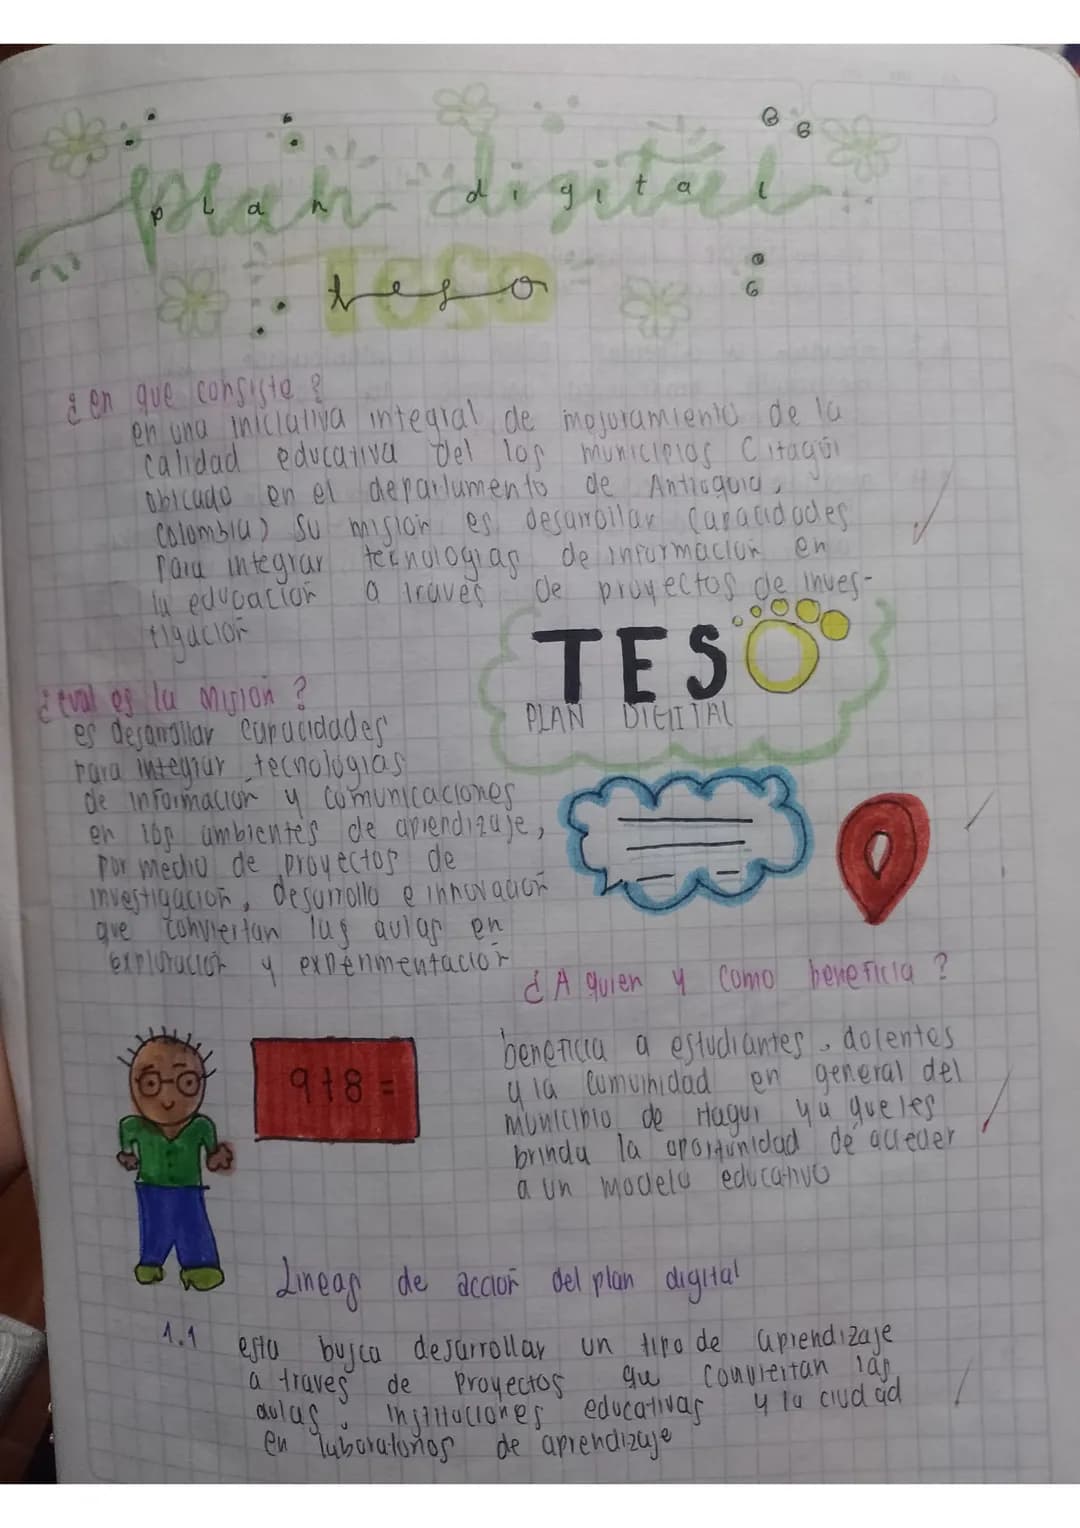 plan digital
teso
¿en que consiste?
en una iniciativa integral de mejoramiento de la
calidad educativa del los municipios Citagüi
obicado en el departamento de Antioquia,
Colombia) su mision es desarrollar capacidades
para integrar tecnologias de informacion en
la educacion a traves de proyectos de inves-
tigacion
TESO
PLAN DIGITAL
¿cual es la mision?
es desarrollar capacidades
para integrar tecnologias
de informacion y comunicaciones
en los ambientes de aprendizaje,
por medio de proyectos de
investigacion, desarrollo e innovacion
que conviertan las aulas en
exploracion y experimentacion
¿A quien y como beneficia?
9+8=
beneficia a estudiantes, docentes
y la comunidad en general del
municipio de itagui ya que les
brinda la oportunidad de acceder
a un modelo educativo
Lineas de accion del plan digital
1.1 esta busca desarrollar un tipo de aprendizaje
a traves de proyectos que conviertan las
aulas, instituciones educativas y la ciudad
en laboratorios de aprendizaje